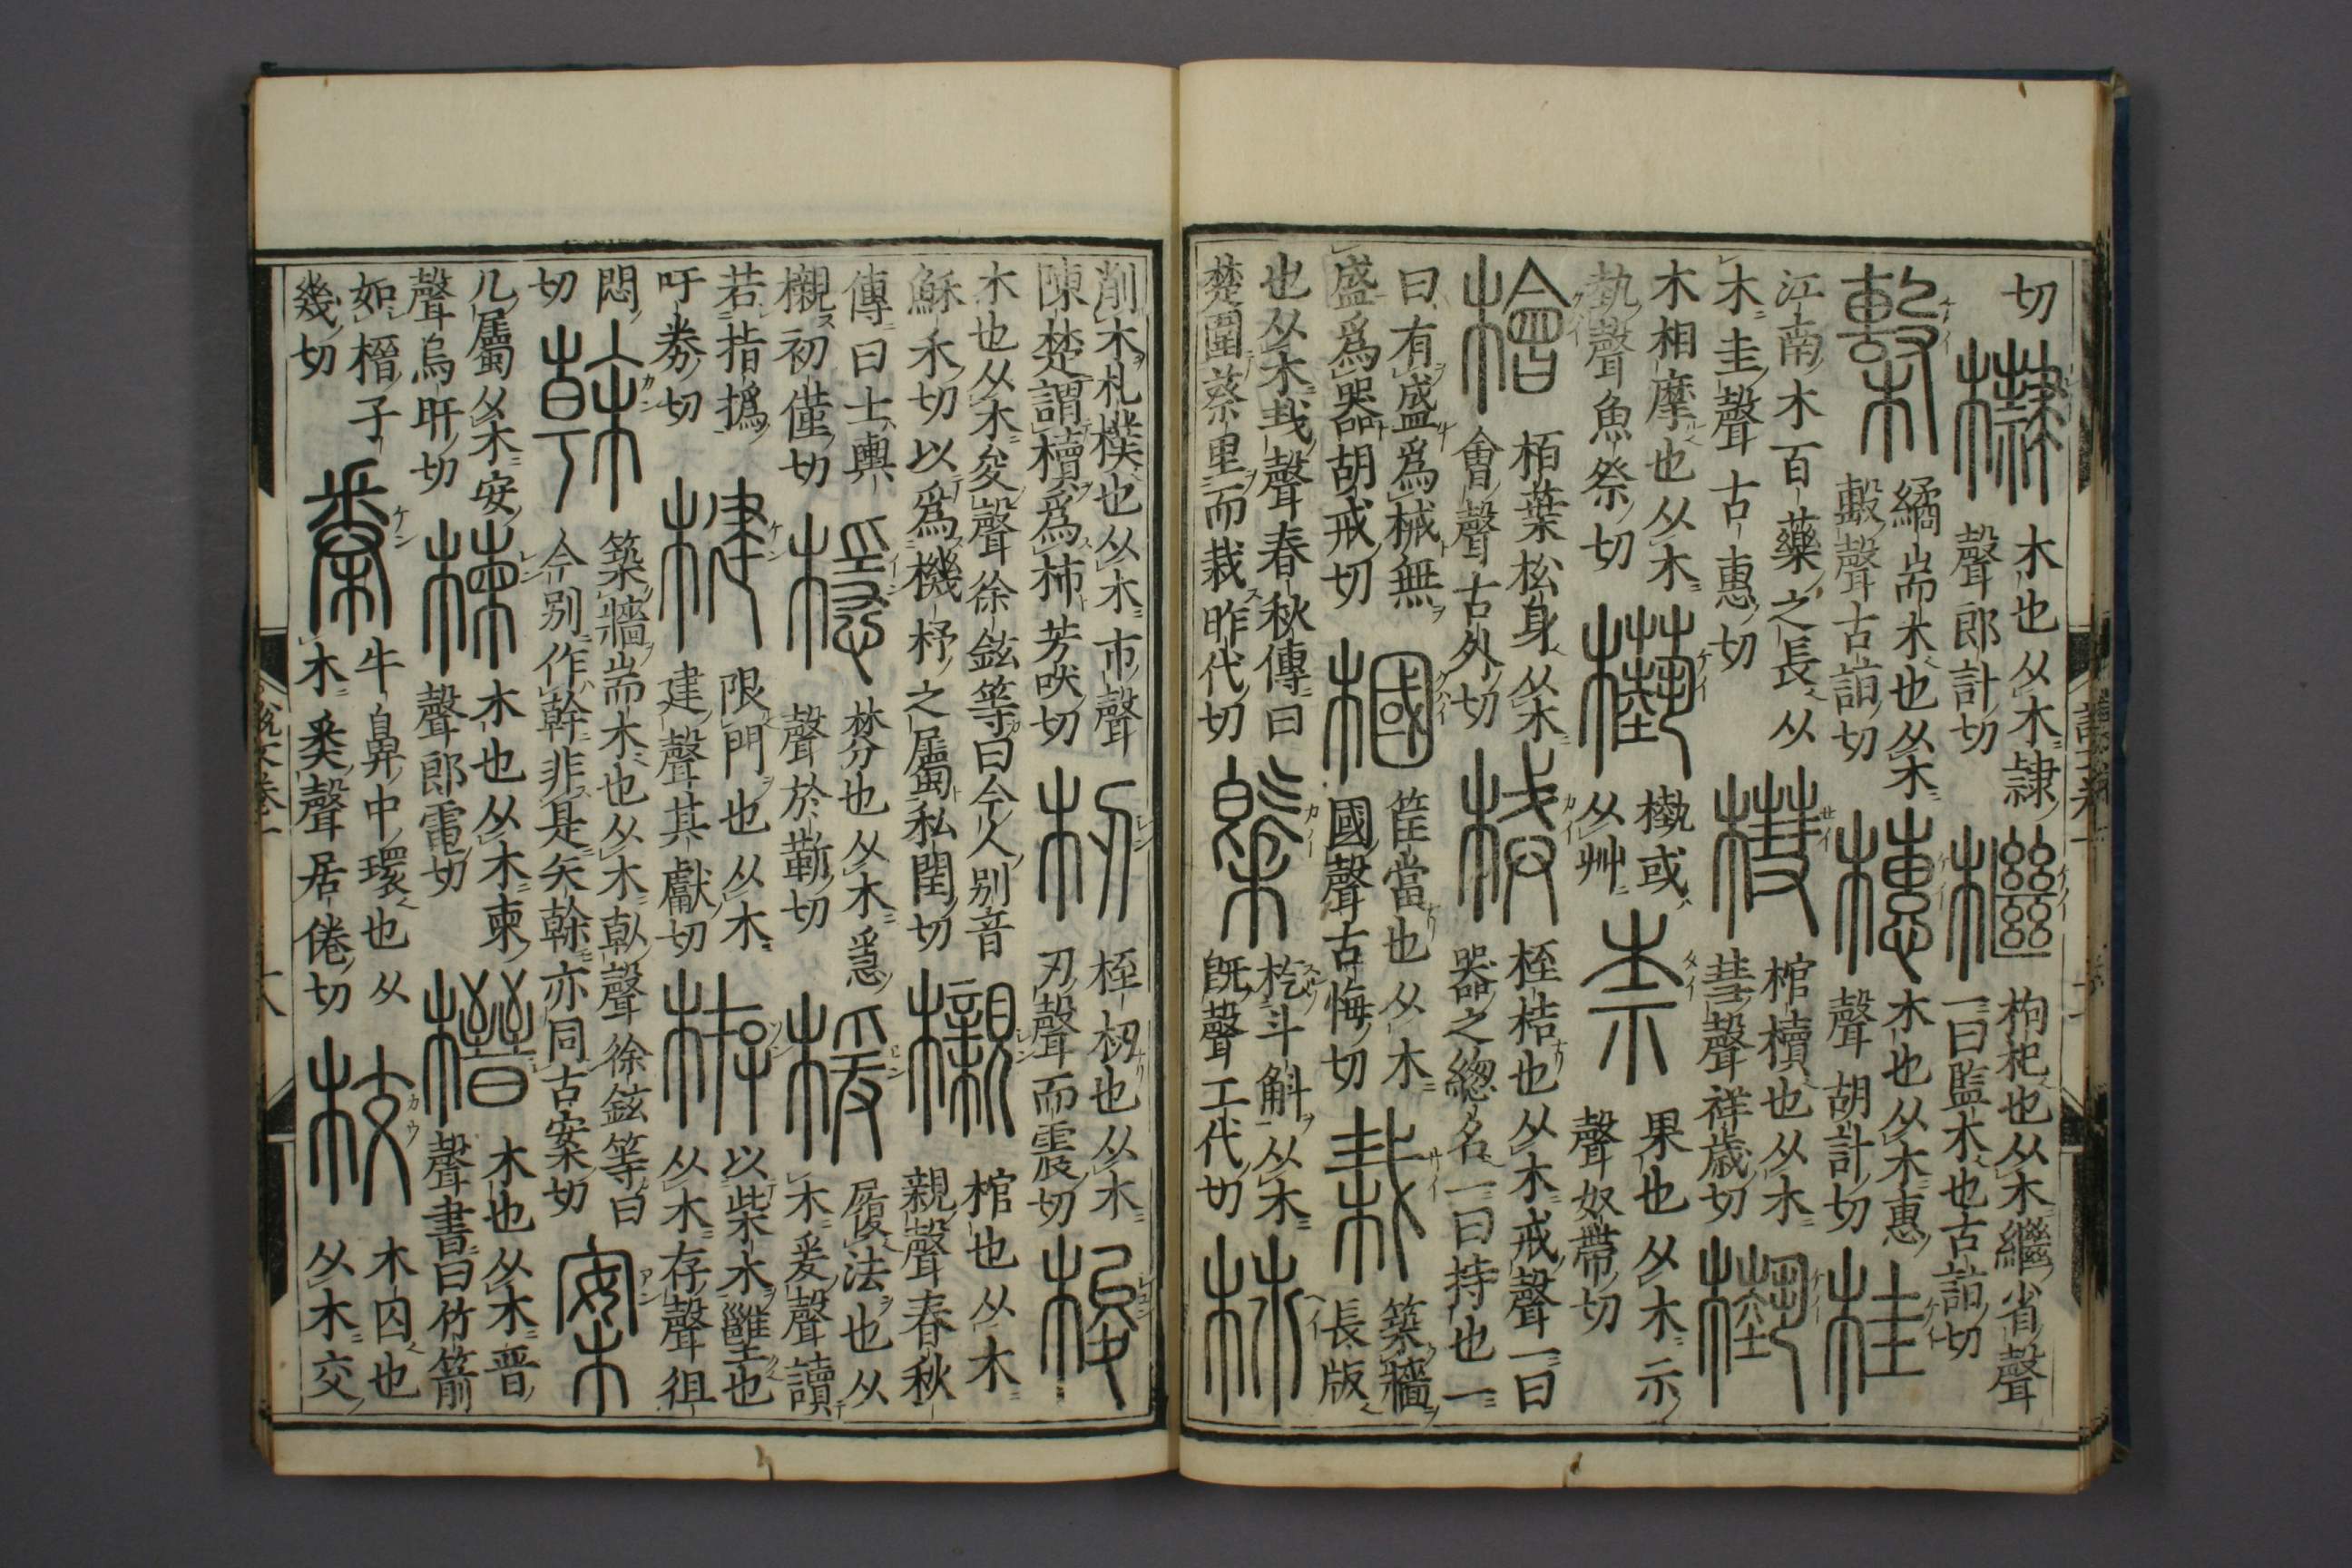 切 木也从木隷聲郎計切 檵 枸杞也从木繼省聲一曰監木也古詣切
繘耑木也从木毄聲古詣切 橞 木也从木惠聲胡計切 桂
江南木百藥之長从木圭聲古惠切 槥 棺櫝也从木彗聲祥歲切 槸
木相摩也从木埶聲魚祭切 槸或从艸 柰 果也从木示聲奴帶切
檜 栢葉松身从木會聲古外切 械 桎梏也从木戒聲一曰器之緫名一曰持也一
曰有盛爲械無盛爲器胡戒切 槶 筐當也从木國聲古悔切 栽 築牆長版
也从木𢦏聲春秋傳曰楚圍蔡里而栽昨代切 槩 杚斗斛从木旣聲工代切 柿
削木札樸也从木巿聲陳楚謂櫝爲柿芳吠切 杒 桎杒也从木刃聲而震切 梭
木也从木夋聲徐鉉等曰今人別音穌禾切以爲機杼之屬私閏切 櫬 棺也从木親聲春秋
傳曰士輿櫬初僅切 㯏 棼也从木㥯聲於靳切 楥 履法也从木爰聲讀
若指撝吁劵切 楗 限門也从木建聲其獻切 栫 以柴木壅也从木存聲徂
悶切 榦 築牆耑木也从木倝聲徐鉉等曰今別作幹非是矢榦亦同古案切 案
几屬从木安聲烏旰切 楝 木也从木柬聲郎電切 榗 木也从木晋聲書曰竹箭
如榗子幾切 桊 牛鼻中環也从木𢍏聲居倦切 校 木囚也从木交